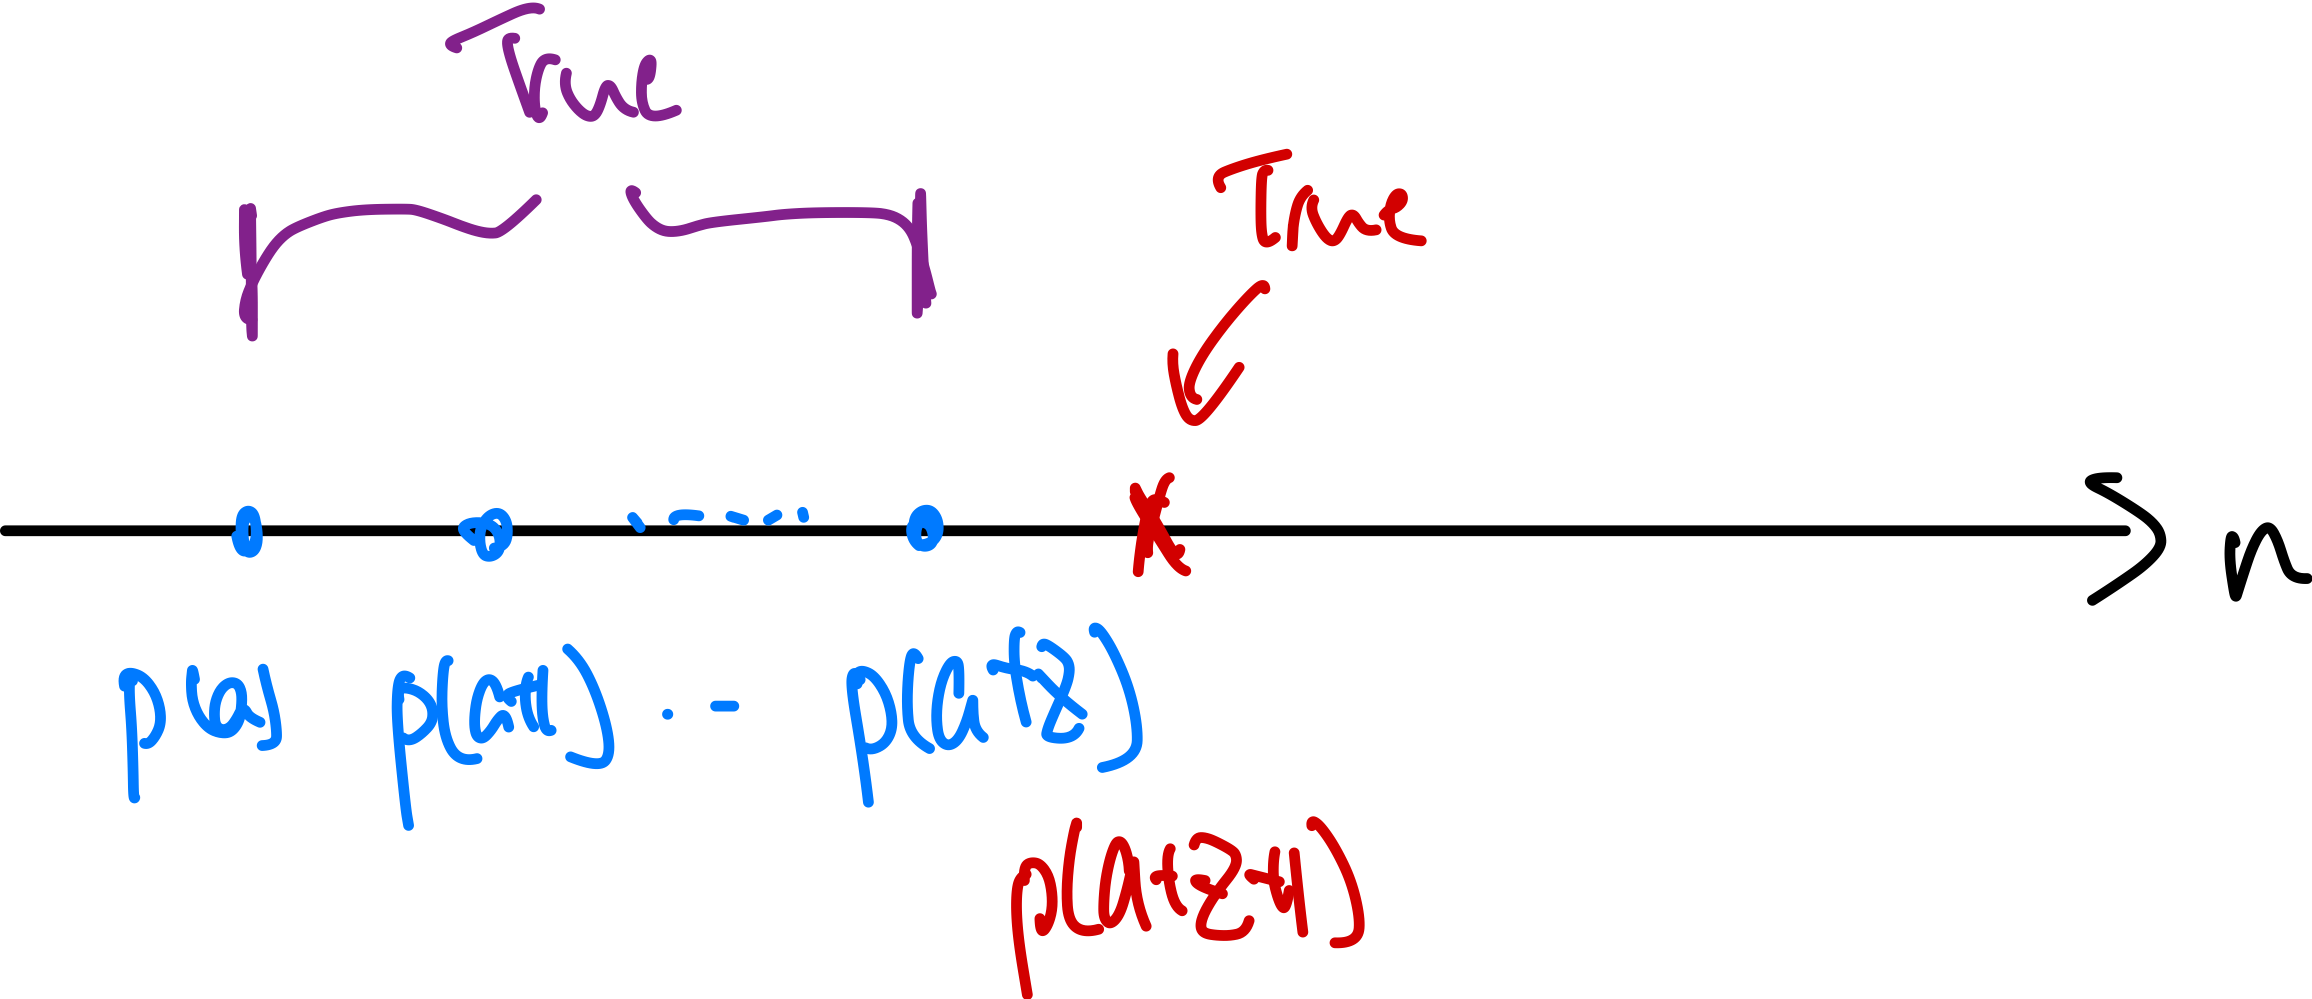 True
True
n
p(a) p(a+1) . - p(a+z)
p(a+z+1)